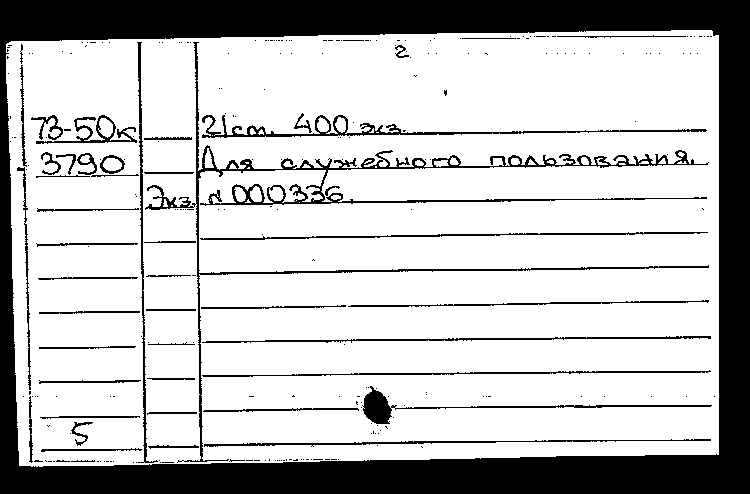 2
73-50к 21 ст. 400 экз.
3790 Для служебного пользования.
Экз. № 000336.
5